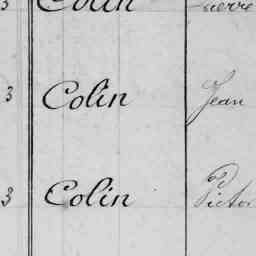 3 Colin Pierre
3 Colin Jean
3 Colin Victor